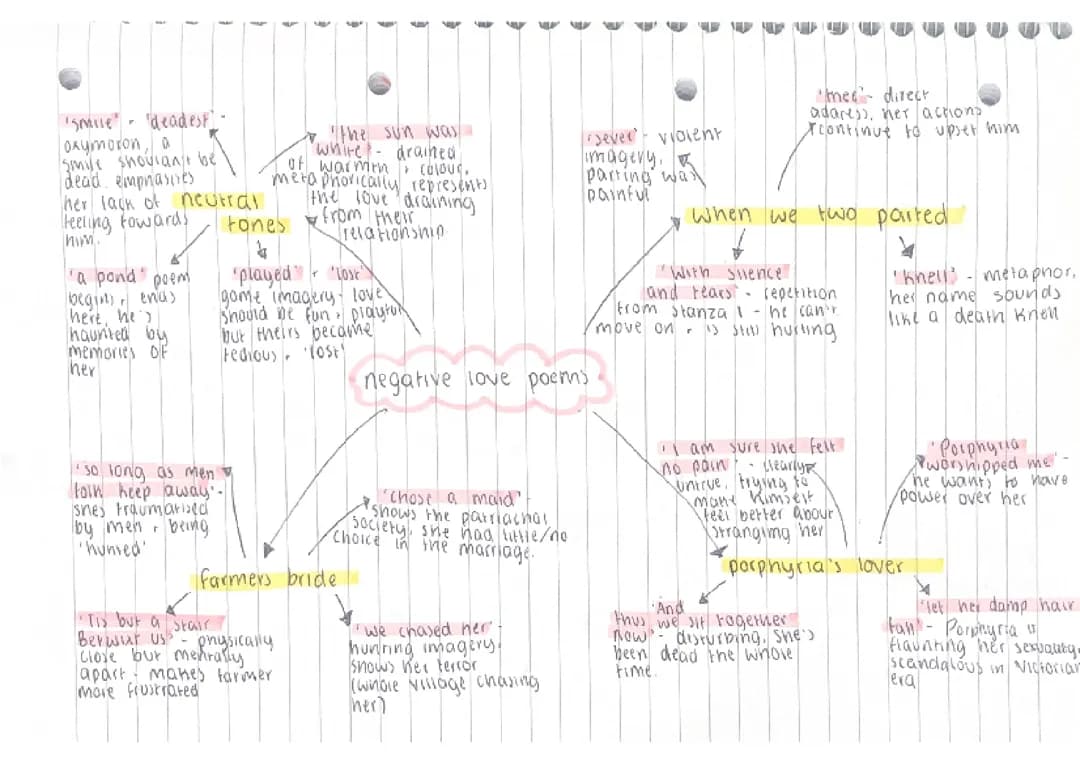 'smile' - 'deadest' -
oxymoron, a
smile shouldn't be
dead. emphasises
her lack of
feeling towards
him.
'the sun was
white' - drained
of warmth + colour,
metaphorically represents
the love draining
from their
relationship
neutral
tones
'a pond' poem
begins + ends
here, he's
haunted by
memories of
her
'played' + 'lost'
game imagery - love
should be fun + playful
but theirs became
tedious + 'lost'
'sever' - violent
imagery,
parting was
painful
'thee' - direct
address, her actions
continue to upset him
when we two parted
'With silence
and tears' - repetition
from stanza 1 - he can't
move on + is still hurting
'knell' - metaphor,
her name sounds
like a death knell
negative love poems
'so long as men
folk keep away' -
shes traumatised
by men + being
'hunted'
'chose a maid' -
shows the patriachal
society, she had little/no
choice in the marriage.
farmers bride
'Tis but a stair
Betwixt us' - physically
close but mentally
apart - makes farmer
more frustrated
'we chased her' -
hunting imagery.
shows her terror
(whole village chasing
her)
'I am sure she felt
no pain' - clearly
untrue, trying to
make himself
feel better about
strangling her
'Porphyria
worshipped me' -
he wants to have
power over her
porphyria's lover
'And
thus we sit together
now' - disturbing, she's
been dead the whole
time.
'let her damp hair
fall' - Porphyria is
flaunting her sexuality,
scandalous in Victorian
era